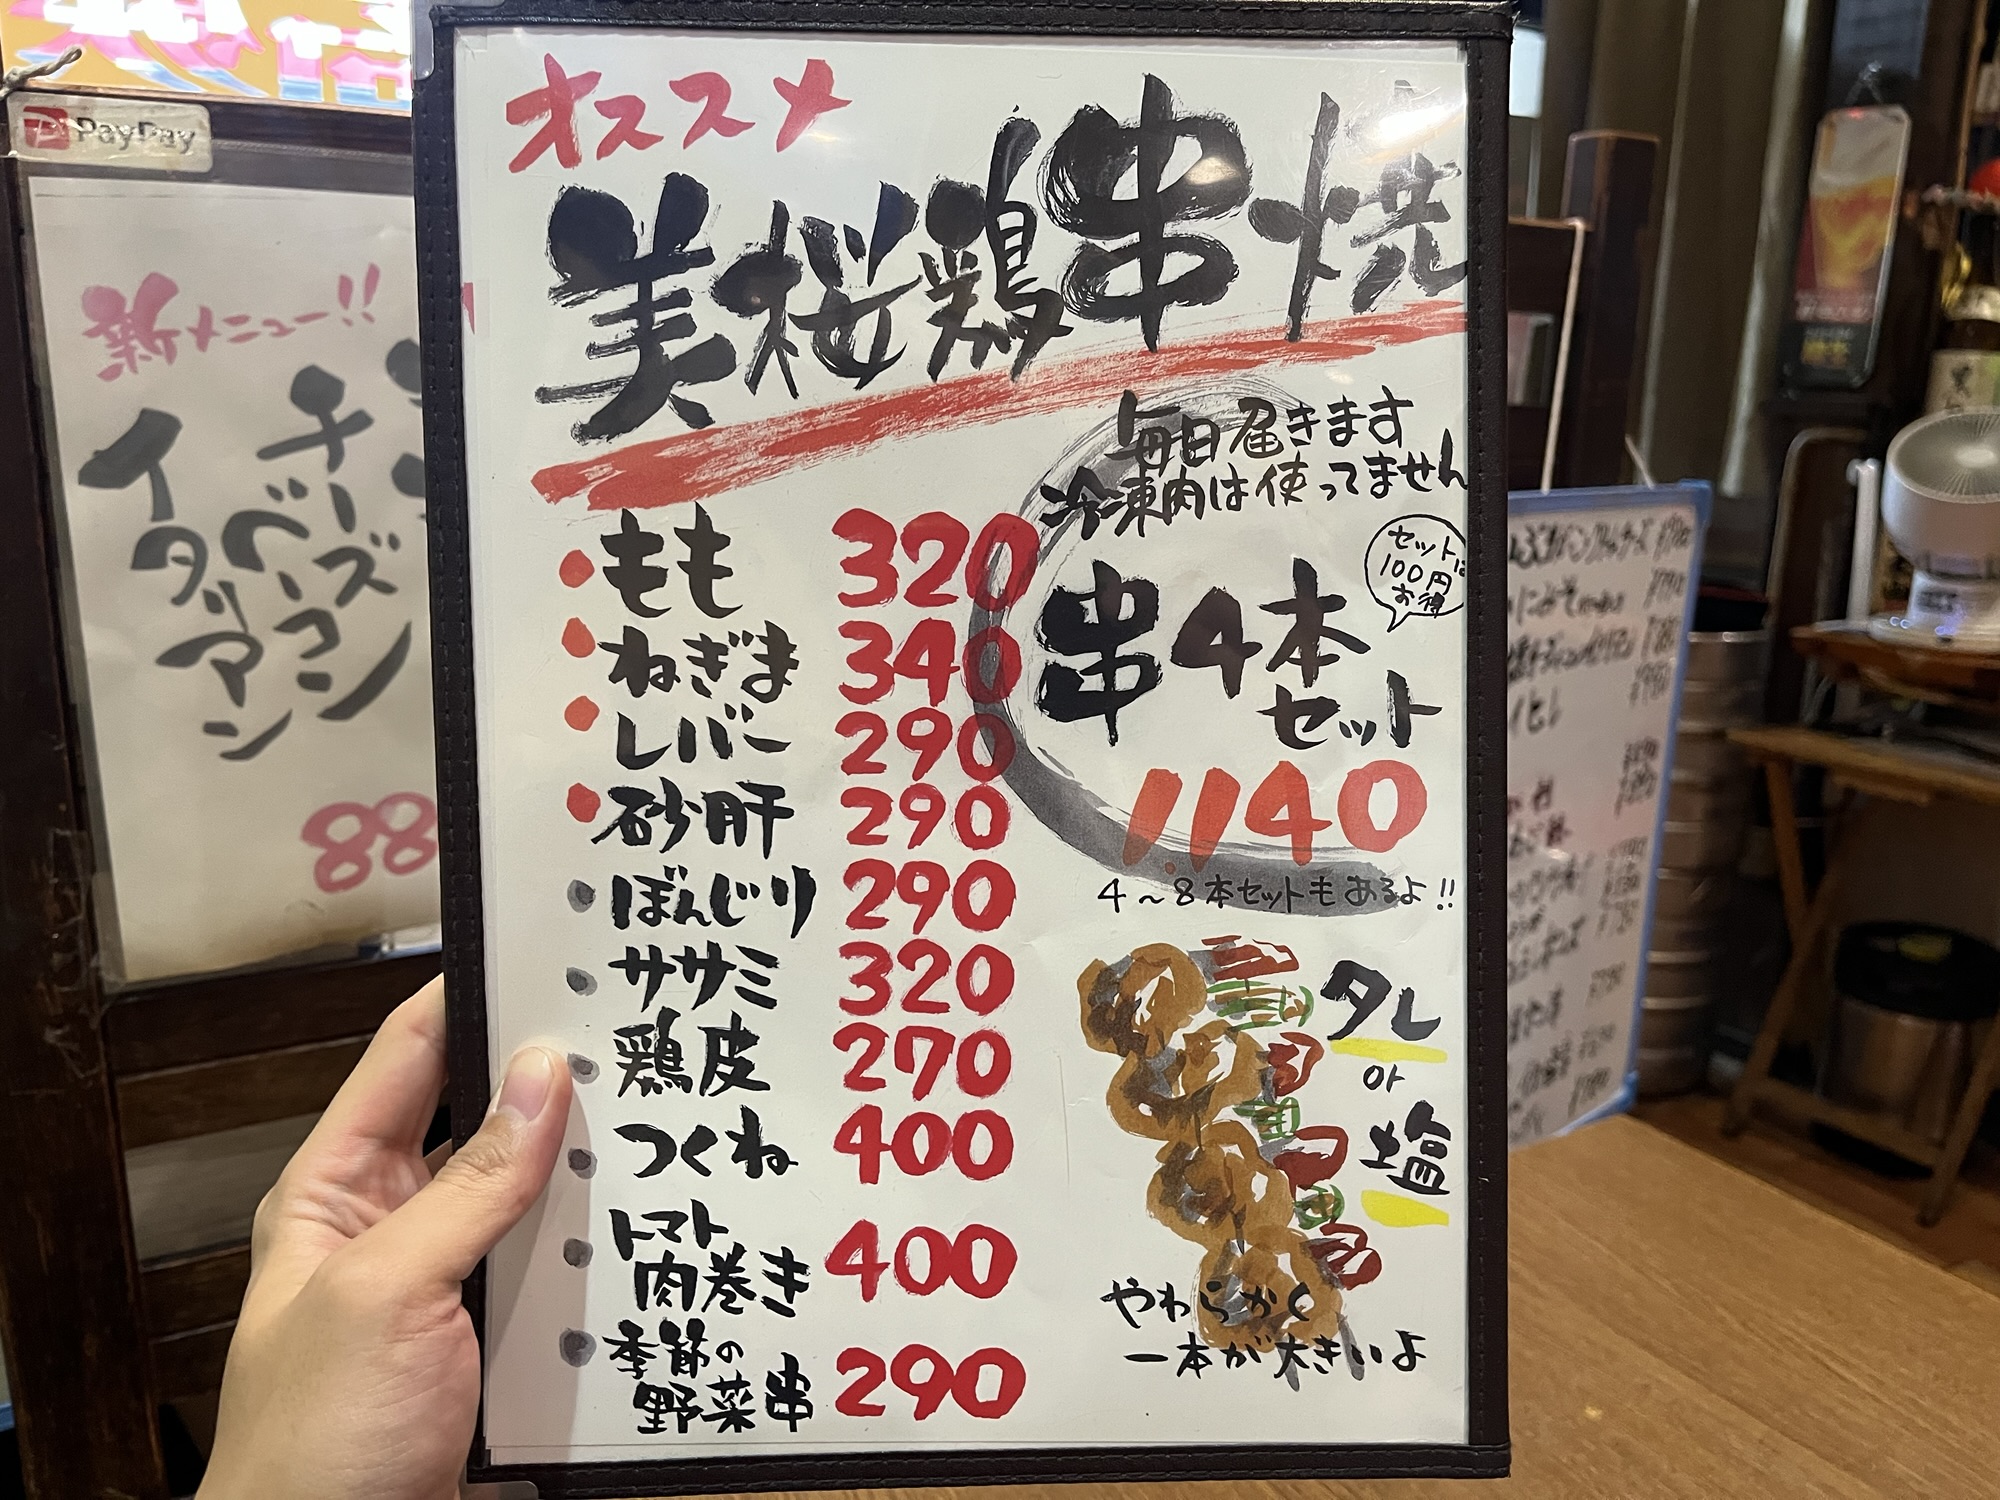 PayPay
新メニュー!!
チーズ
ベーコン
イタリアン
88
オススメ
美桜鶏串焼
毎日届きます
冷凍肉は使ってません
もも 320
ねぎま 340
レバー 290
砂肝 290
ぼんじり 290
ササミ 320
鶏皮 270
つくね 400
トマト
肉巻き 400
季節の
野菜串 290
セットは
100円
お得
串4本
セット
1.140
4~8本セットもあるよ!!
タレ
or
塩
やわらかく
一本が大きいよ